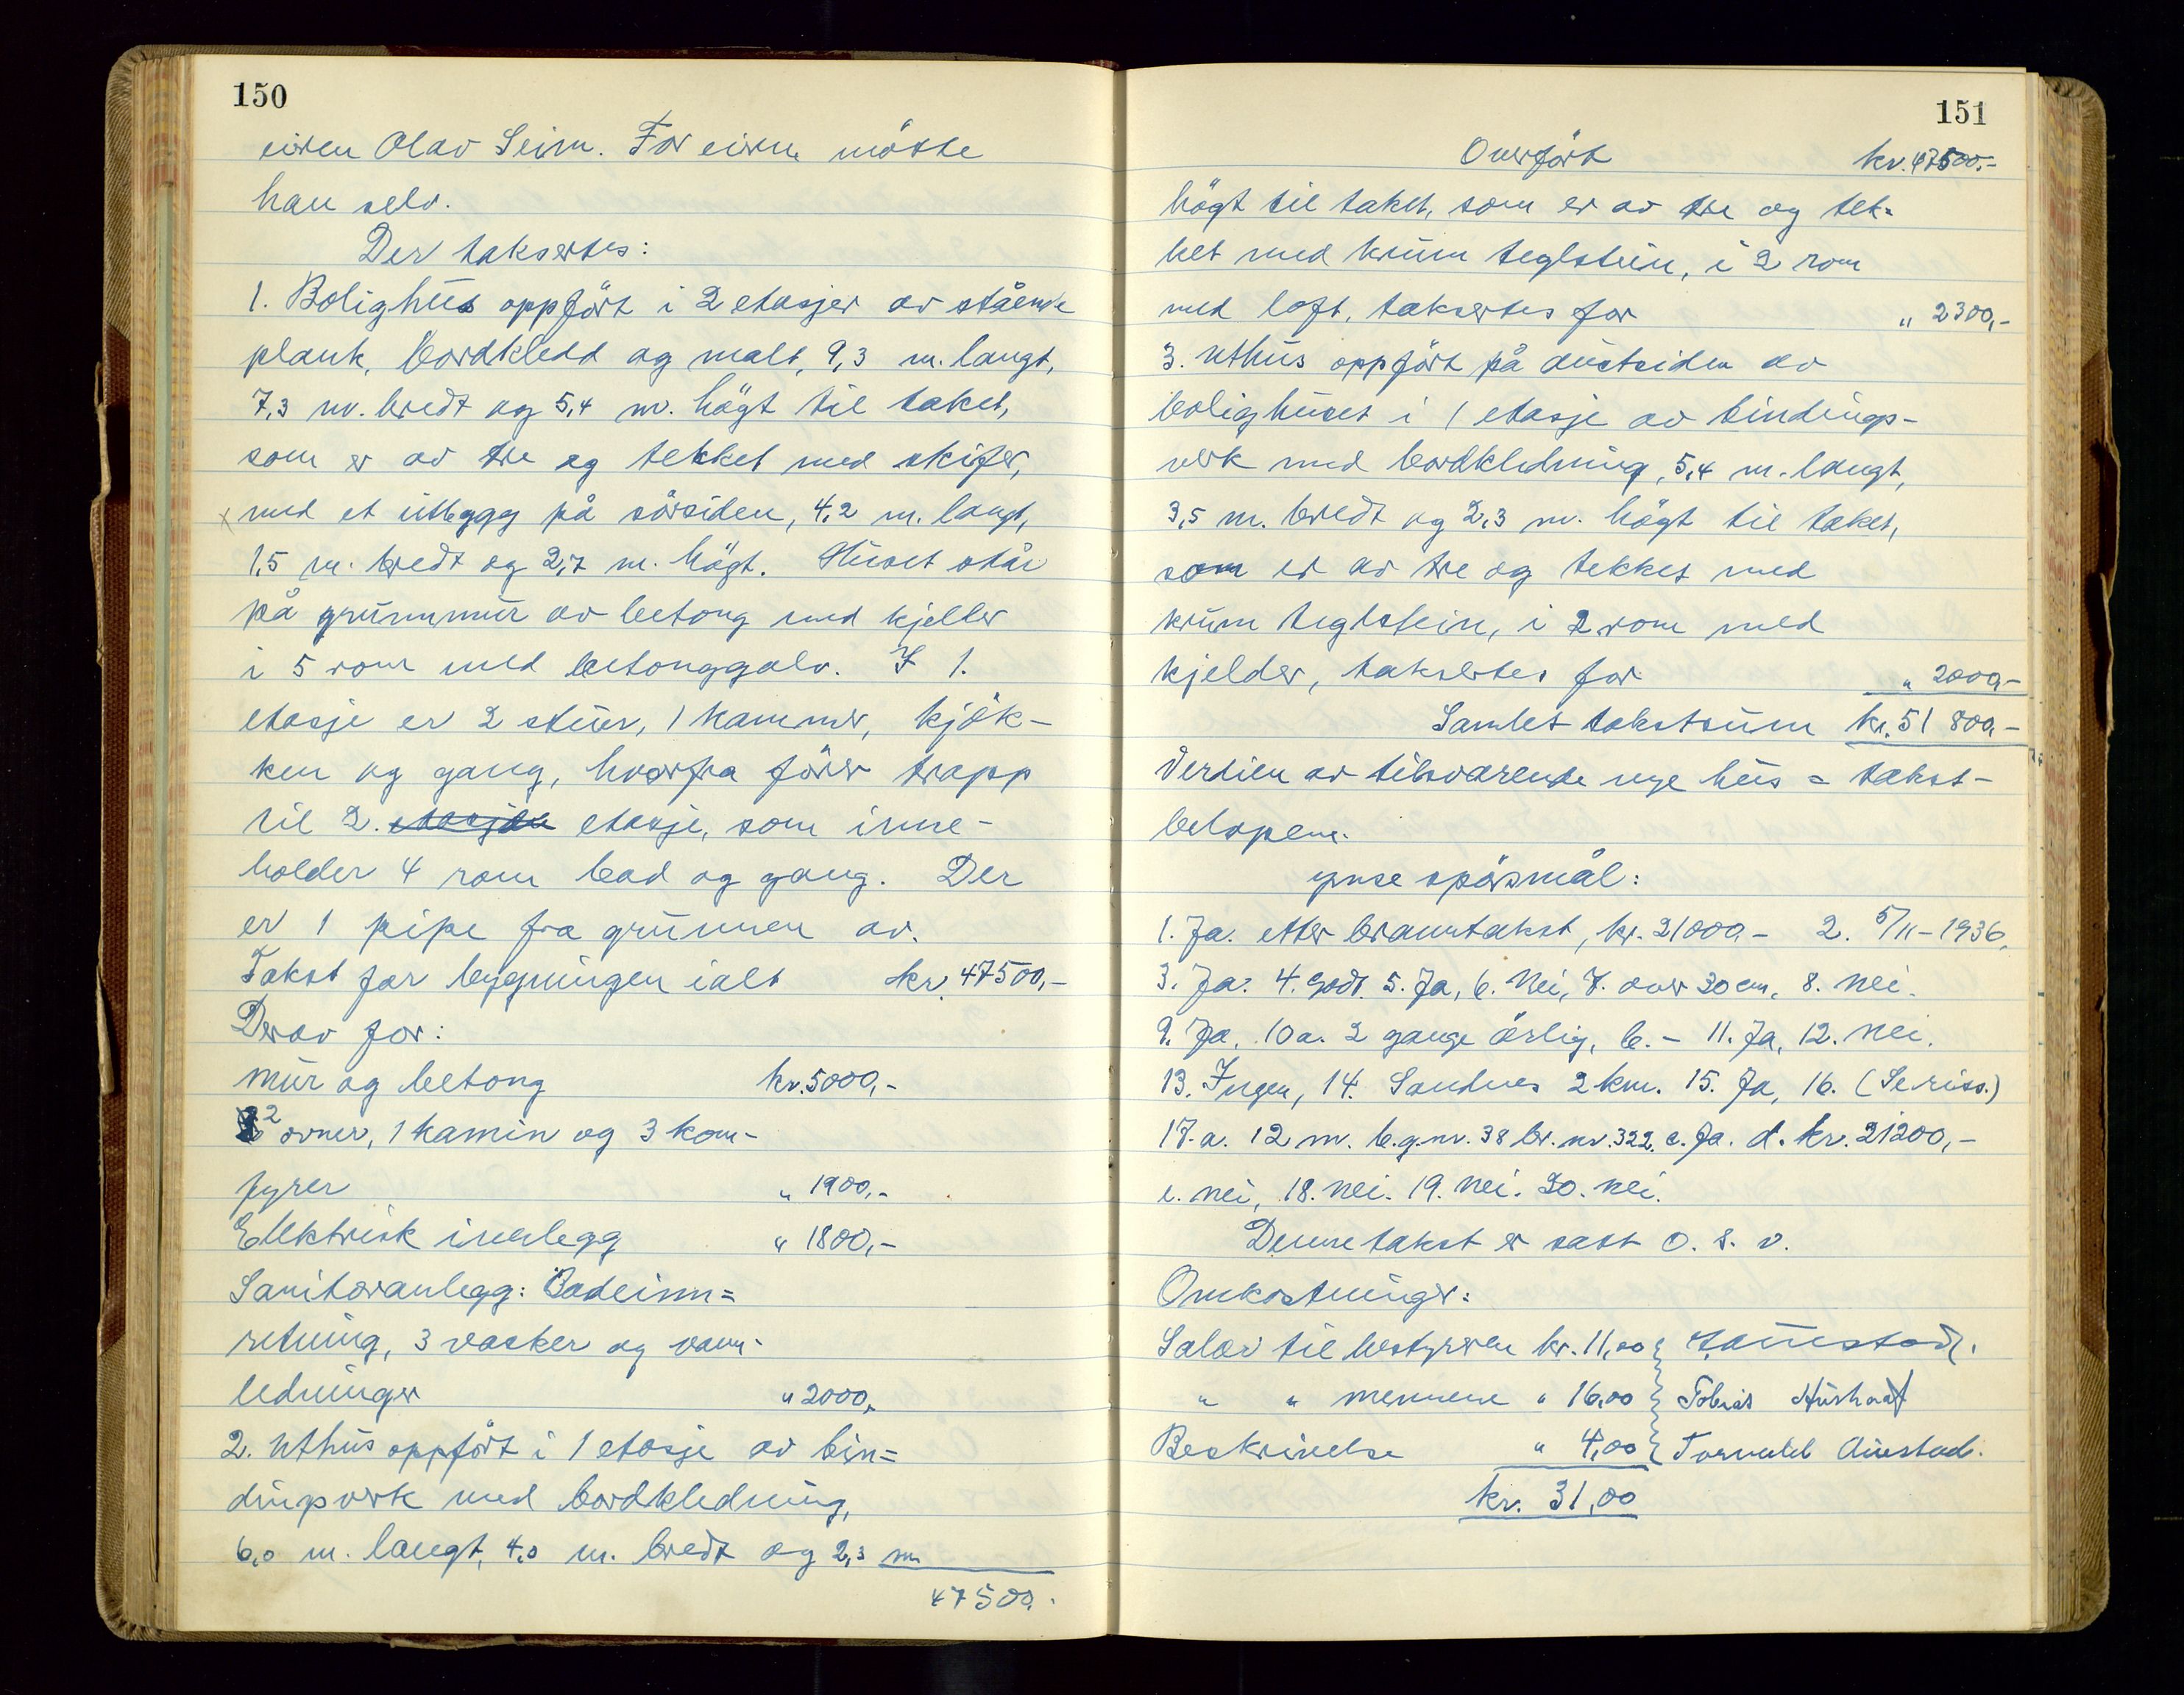 150
eiren Olav Seim. For eiren møtte
han selv.
Der taksertes:
1. Bolighus oppfört i 2 etasjer av stående
plank, bordkledd og malt, 9,3 m. langt,
7,3 m. bredt og 5,4 m. högt til taket,
som er av tre og tekket med skifer,
x med et utbygg på sörsiden, 4,2 m. langt,
1,5 m. bredt og 2,7 m. högt. Huset står
på grunnmur av betong med kjeller
i 5 rom med betonggolv. I 1.
etasje er 2 stuer, 1 kammer, kjök-
ken og gang, hvorfra förer trapp
til 2. etasjen etasje, som inne-
holder 4 rom bad og gang. Der
er 1 pipe fra grunnen av.
Takst for bygningen ialt kr. 47500,-
Derav for:
mur og betong kr. 5000,-
2 ovner, 1 kamin og 3 kom-
fyrer " 1900,-
Elektrisk innlegg " 1800,-
Sanitæranlegg: Badeinn=
retning, 3 vasker og vann-
ledninger " 2000,-
2. Uthus oppfört i 1 etasje av bin=
dingsverk med bordkledning,
6,0 m. langt, 4,0 m. bredt og 2,3 m
47500.-
151
Overfört kr. 47500.-
högt til taket, som er av tre og tek=
ket med krum teglstein, i 2 rom
med loft, taksertes for " 2300,-
3. Uthus oppfört på austsiden av
bolighuset i 1 etasje av bindings-
verk med bordkledning, 5,4 m. langt,
3,5 m. bredt og 2,3 m. högt til taket,
som er av tre og tekket med
krum teglstein, i 2 rom med
kjelder, taksertes for " 2000,-
Samlet takstsum kr. 51 800,-
Verdien av tilsvarende nye hus = takst-
belopene.
ymse spörsmål:
1. Ja. etter branntakst, kr. 21000,- 2. 5/11-1936.
3. Ja. 4. Godt. 5. Ja, 6. Nei, 7. over 30 cm, 8. Nei.
9. Ja, 10a. 2 gange årlig, b. - 11. Ja, 12. Nei.
13. Ingen, 14. Sandnes 2 km. 15. Ja, 16. (Se riss.)
17. a. 12 m. b. g.nr. 38 br. nr. 322. c. Ja. d. kr. 21200,-
e. nei, 18. nei. 19. nei. 20. nei.
Denne takst er satt o. s. v.
Omkostninger:
Salær til bestyreren kr. 11,00
" " mennene " 16,00 Tobias
Beskrivelse " 4,00 Torvald Austad.
kr. 31,00